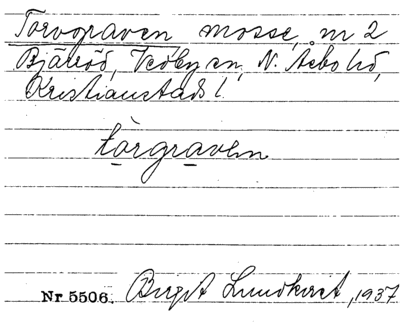 Torvgraven mosse, nr 2
Bjäröd, Vedbyen, N. Åsbo hd,
Kristianstads l.
tórgraven
Nr 5506. Birgit Lundkvist, 1937